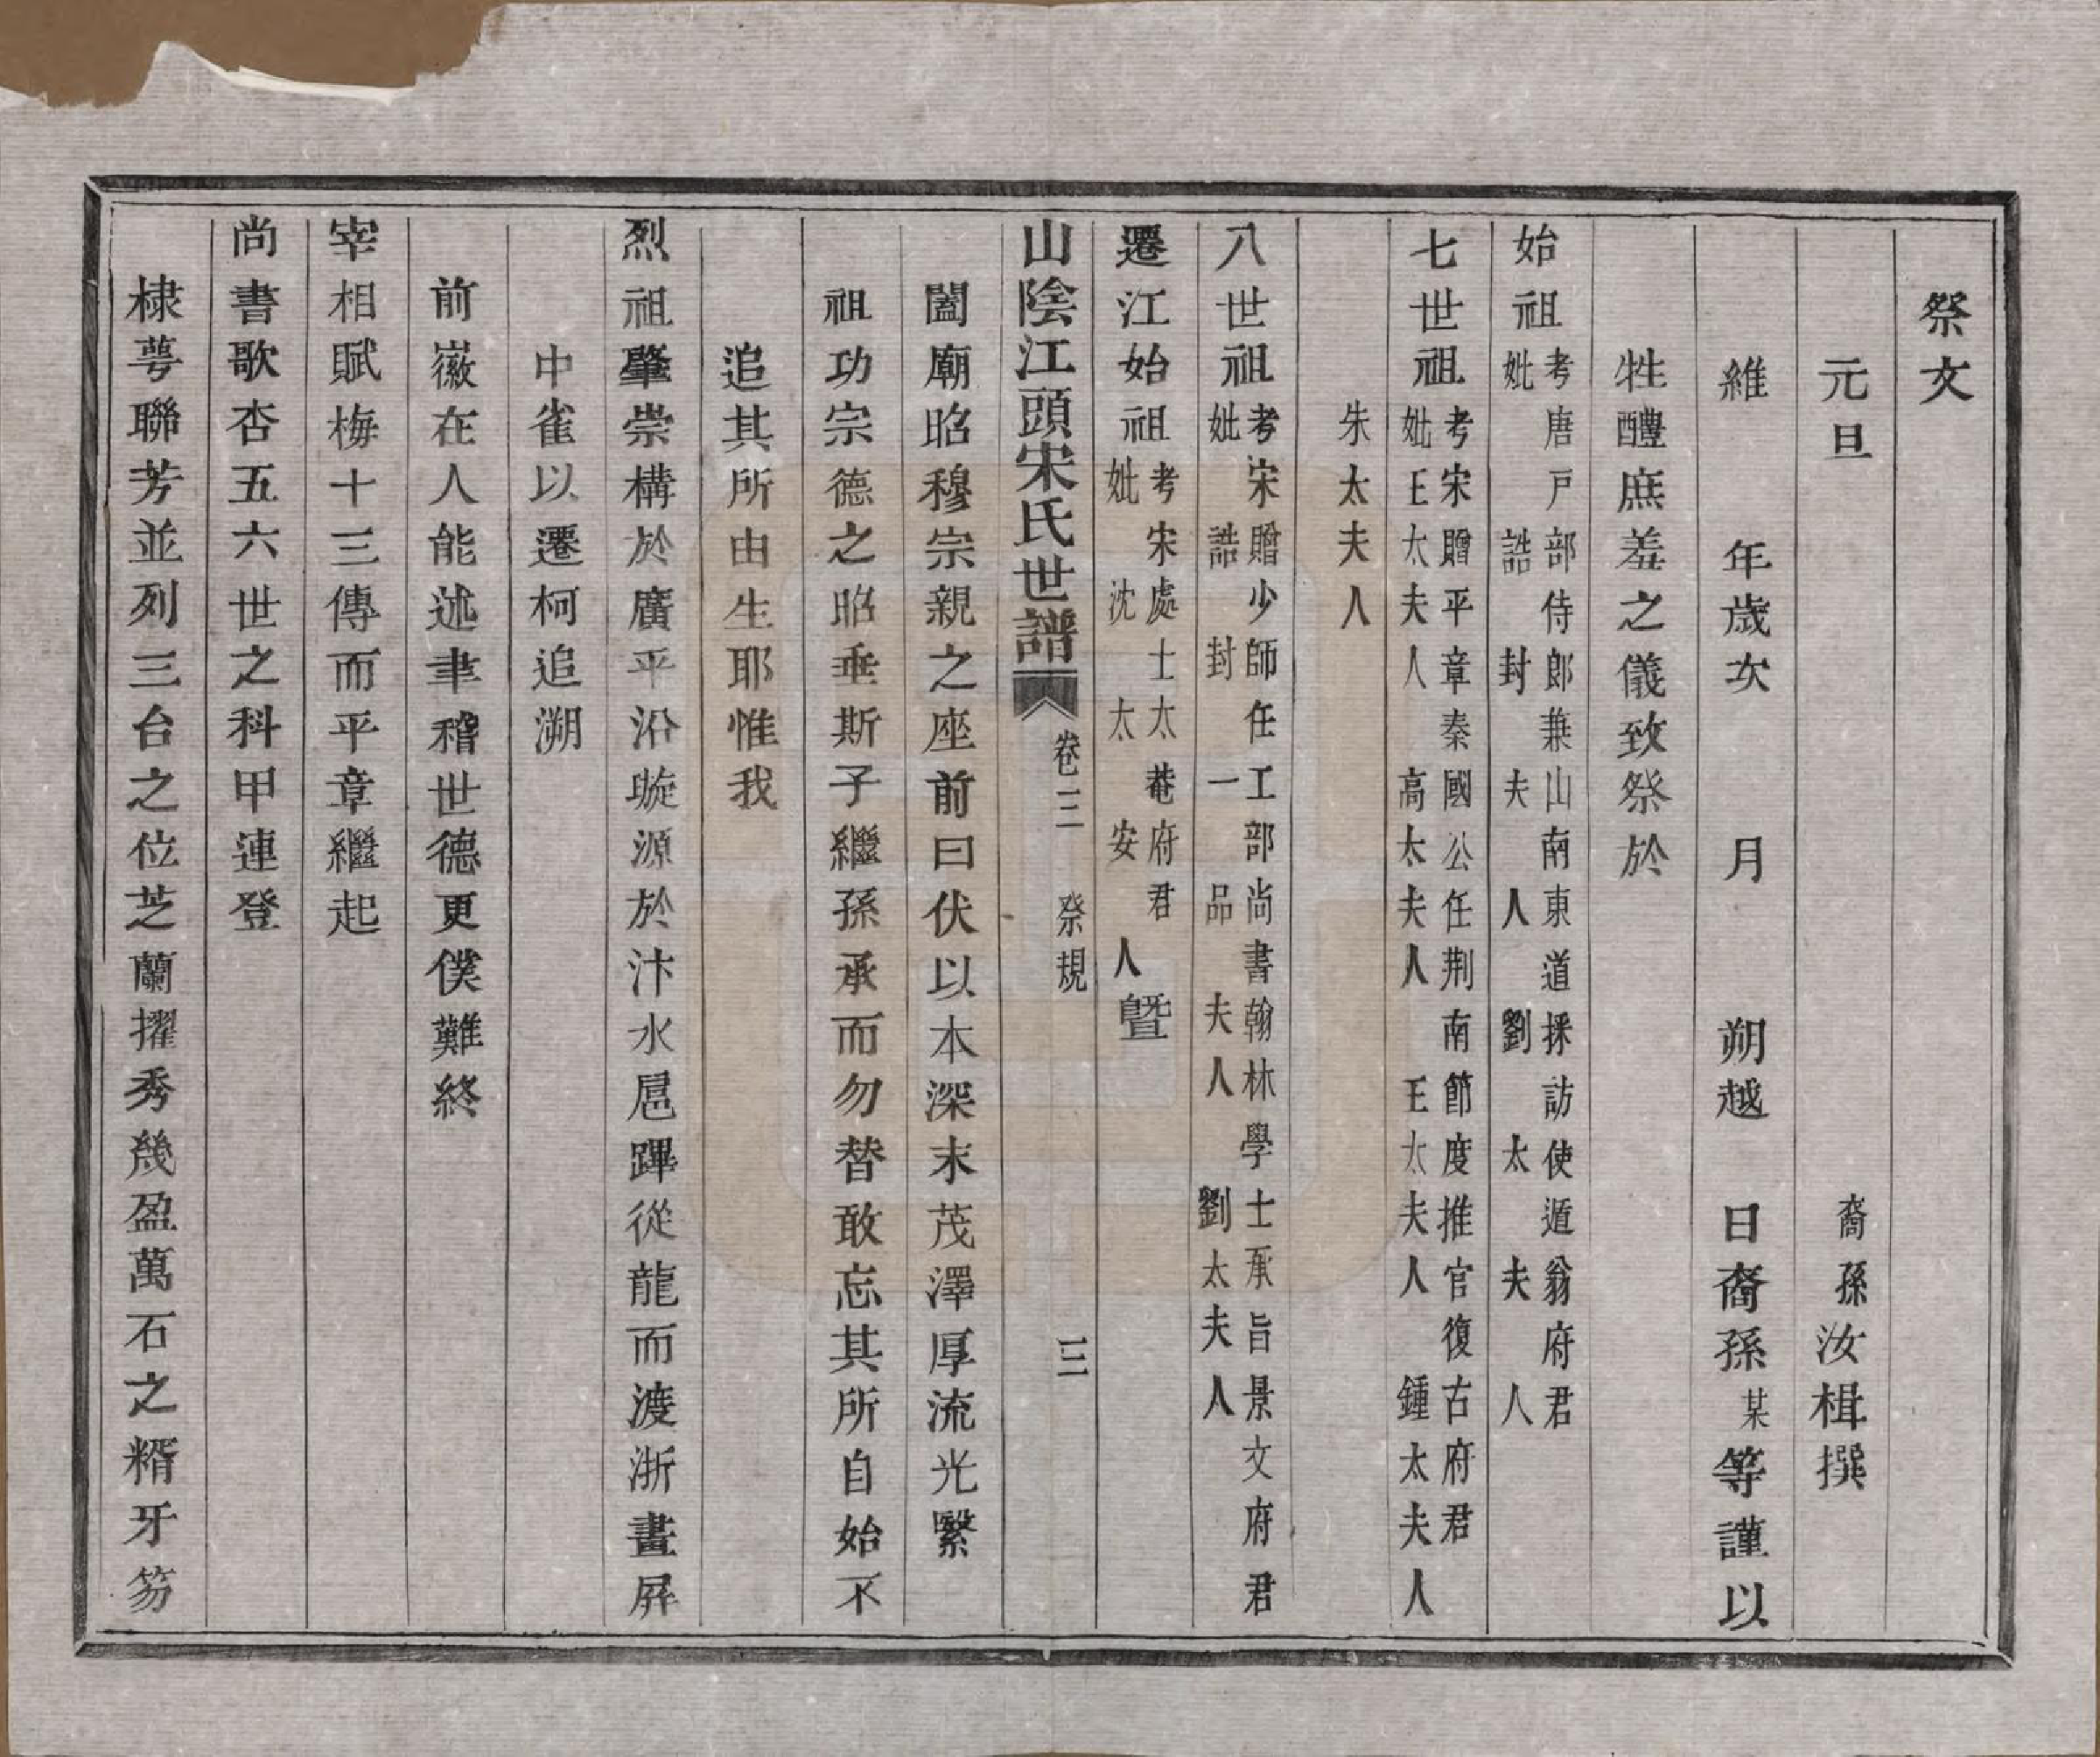 祭文
元旦　裔孫汝楫撰
維　年歲次　月　朔越　日裔孫某等謹以
牲醴庶羞之儀致祭於
始祖考唐戸部侍郎兼山南東道採訪使遁翁府君
妣誥封夫人劉太夫人
七世祖考宋贈平章秦國公任荆南節度推官復古府君
妣王太夫人高太夫人王太夫人鍾太夫人
朱太夫人
八世祖考宋贈少師任工部尚書翰林學士承旨景文府君
妣誥封一品夫人劉太夫人
遷江始祖考宋處士太菴府君
妣沈太安人曁
山陰江頭宋氏世譜　卷三　祭規　三
闔廟昭穆宗親之座前曰伏以本深末茂澤厚流光繄
祖功宗德之昭垂斯子繼孫承而勿替敢忘其所自始不
追其所由生耶惟我
烈祖肇崇構於廣平沿璇源於汴水扈蹕從龍而渡浙畫屏
中雀以遷柯追溯
前徽在人能述聿稽世德更僕難終
宰相賦梅十三傳而平章繼起
尚書歌杏五六世之科甲連登
棣萼聯芳並列三台之位芝蘭擢秀幾盈萬石之糈牙笏